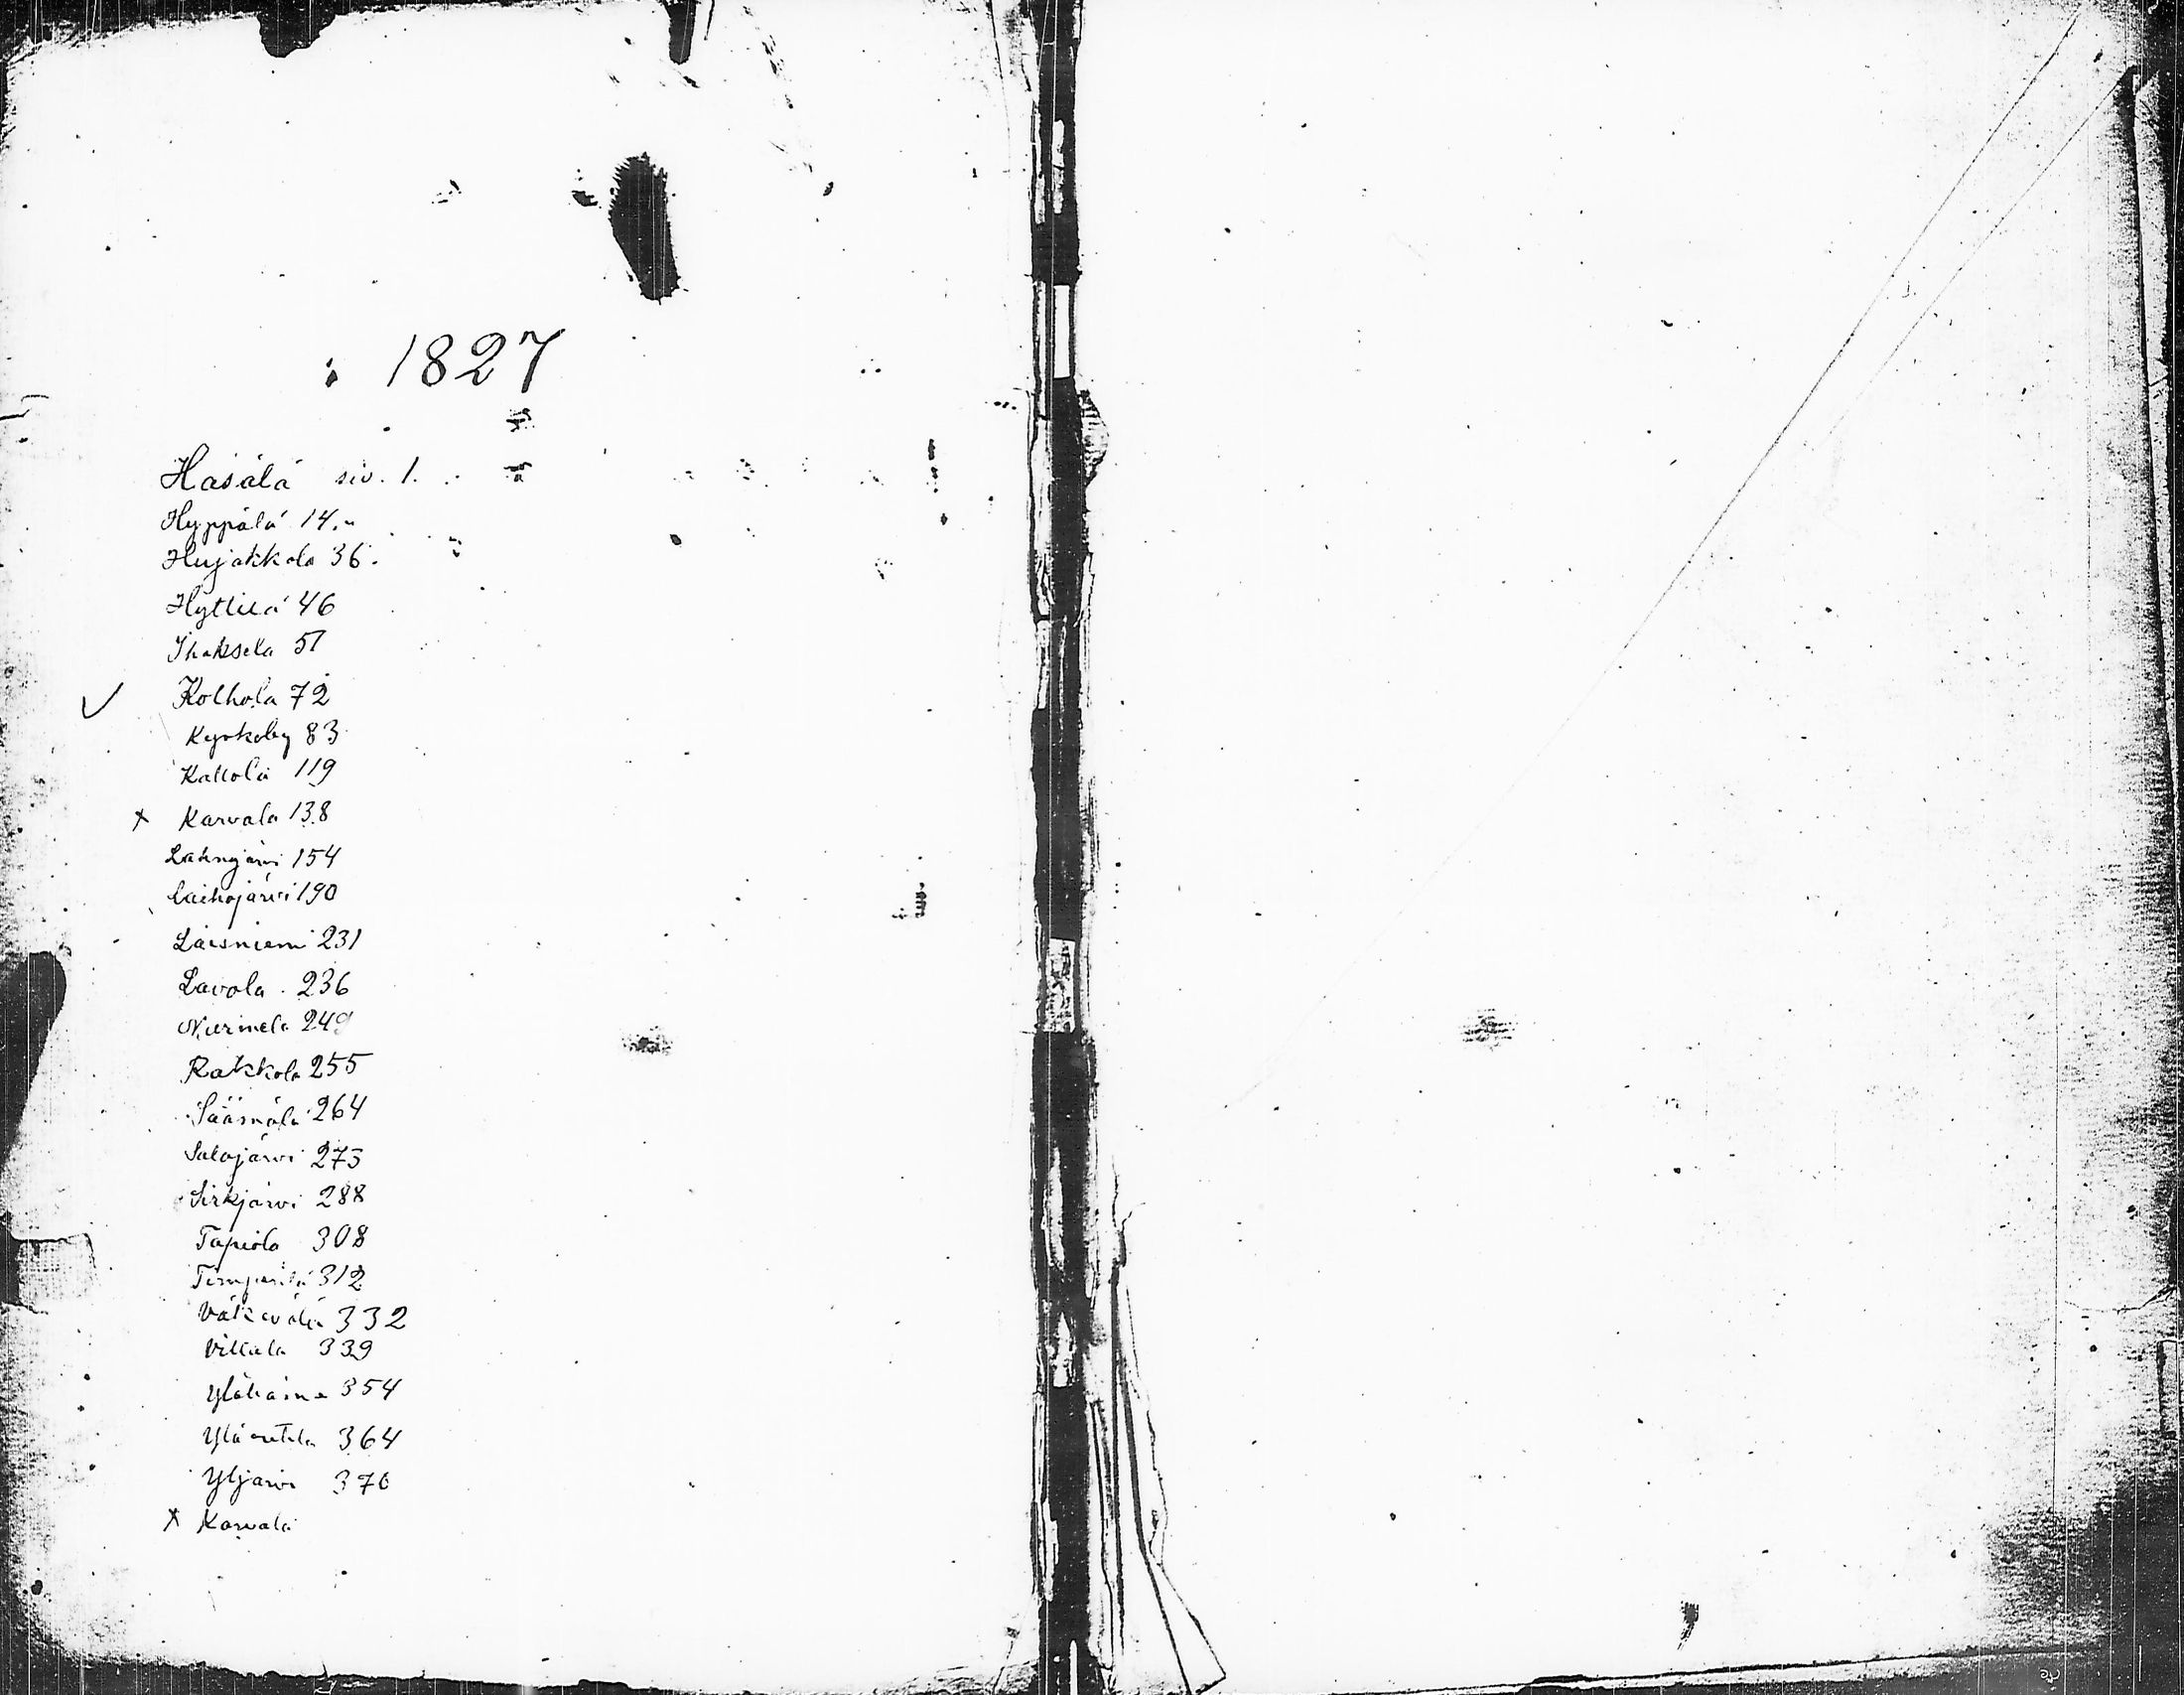 1827
Hasälä siv. 1.
Hyppälä 14.
Hujakkala 36.
Hyttilä 46
Ihaksela 57
Kolhola 72
Kyrkoby 83
Kattola 119
x Karvala 138
Lahnajärvi 154
Laihajärvi 190
Laisniemi 231
Lavola 236
Nurmela 249
Rakkola 255
Säämälä 264
Salajärvi 273
Sirkjärvi 288
Tapiola 308
Timperilä 312
Väkevälä 332
Villala 339
354
364
Yljärvi 376
x Karvala